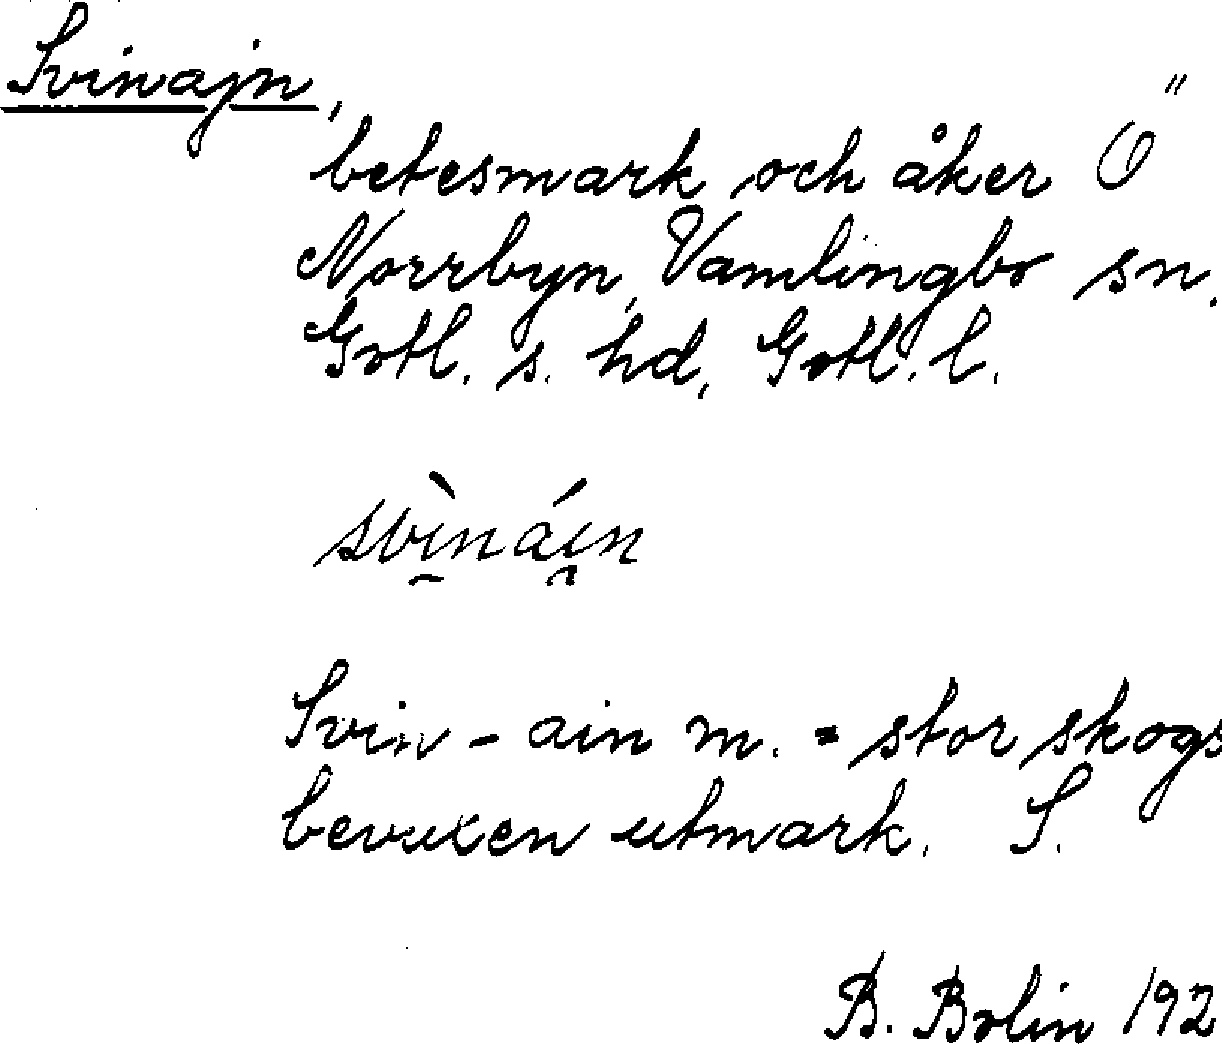 Svinajn,
betesmark och åker Ö
Norrbyn, Vamlingbo sn.
Gotl. s. hd, Gotl. l.
svìnáın
Svin-ain m. = stor skogs
bevuxen utmark. S.
B. Bolin 192